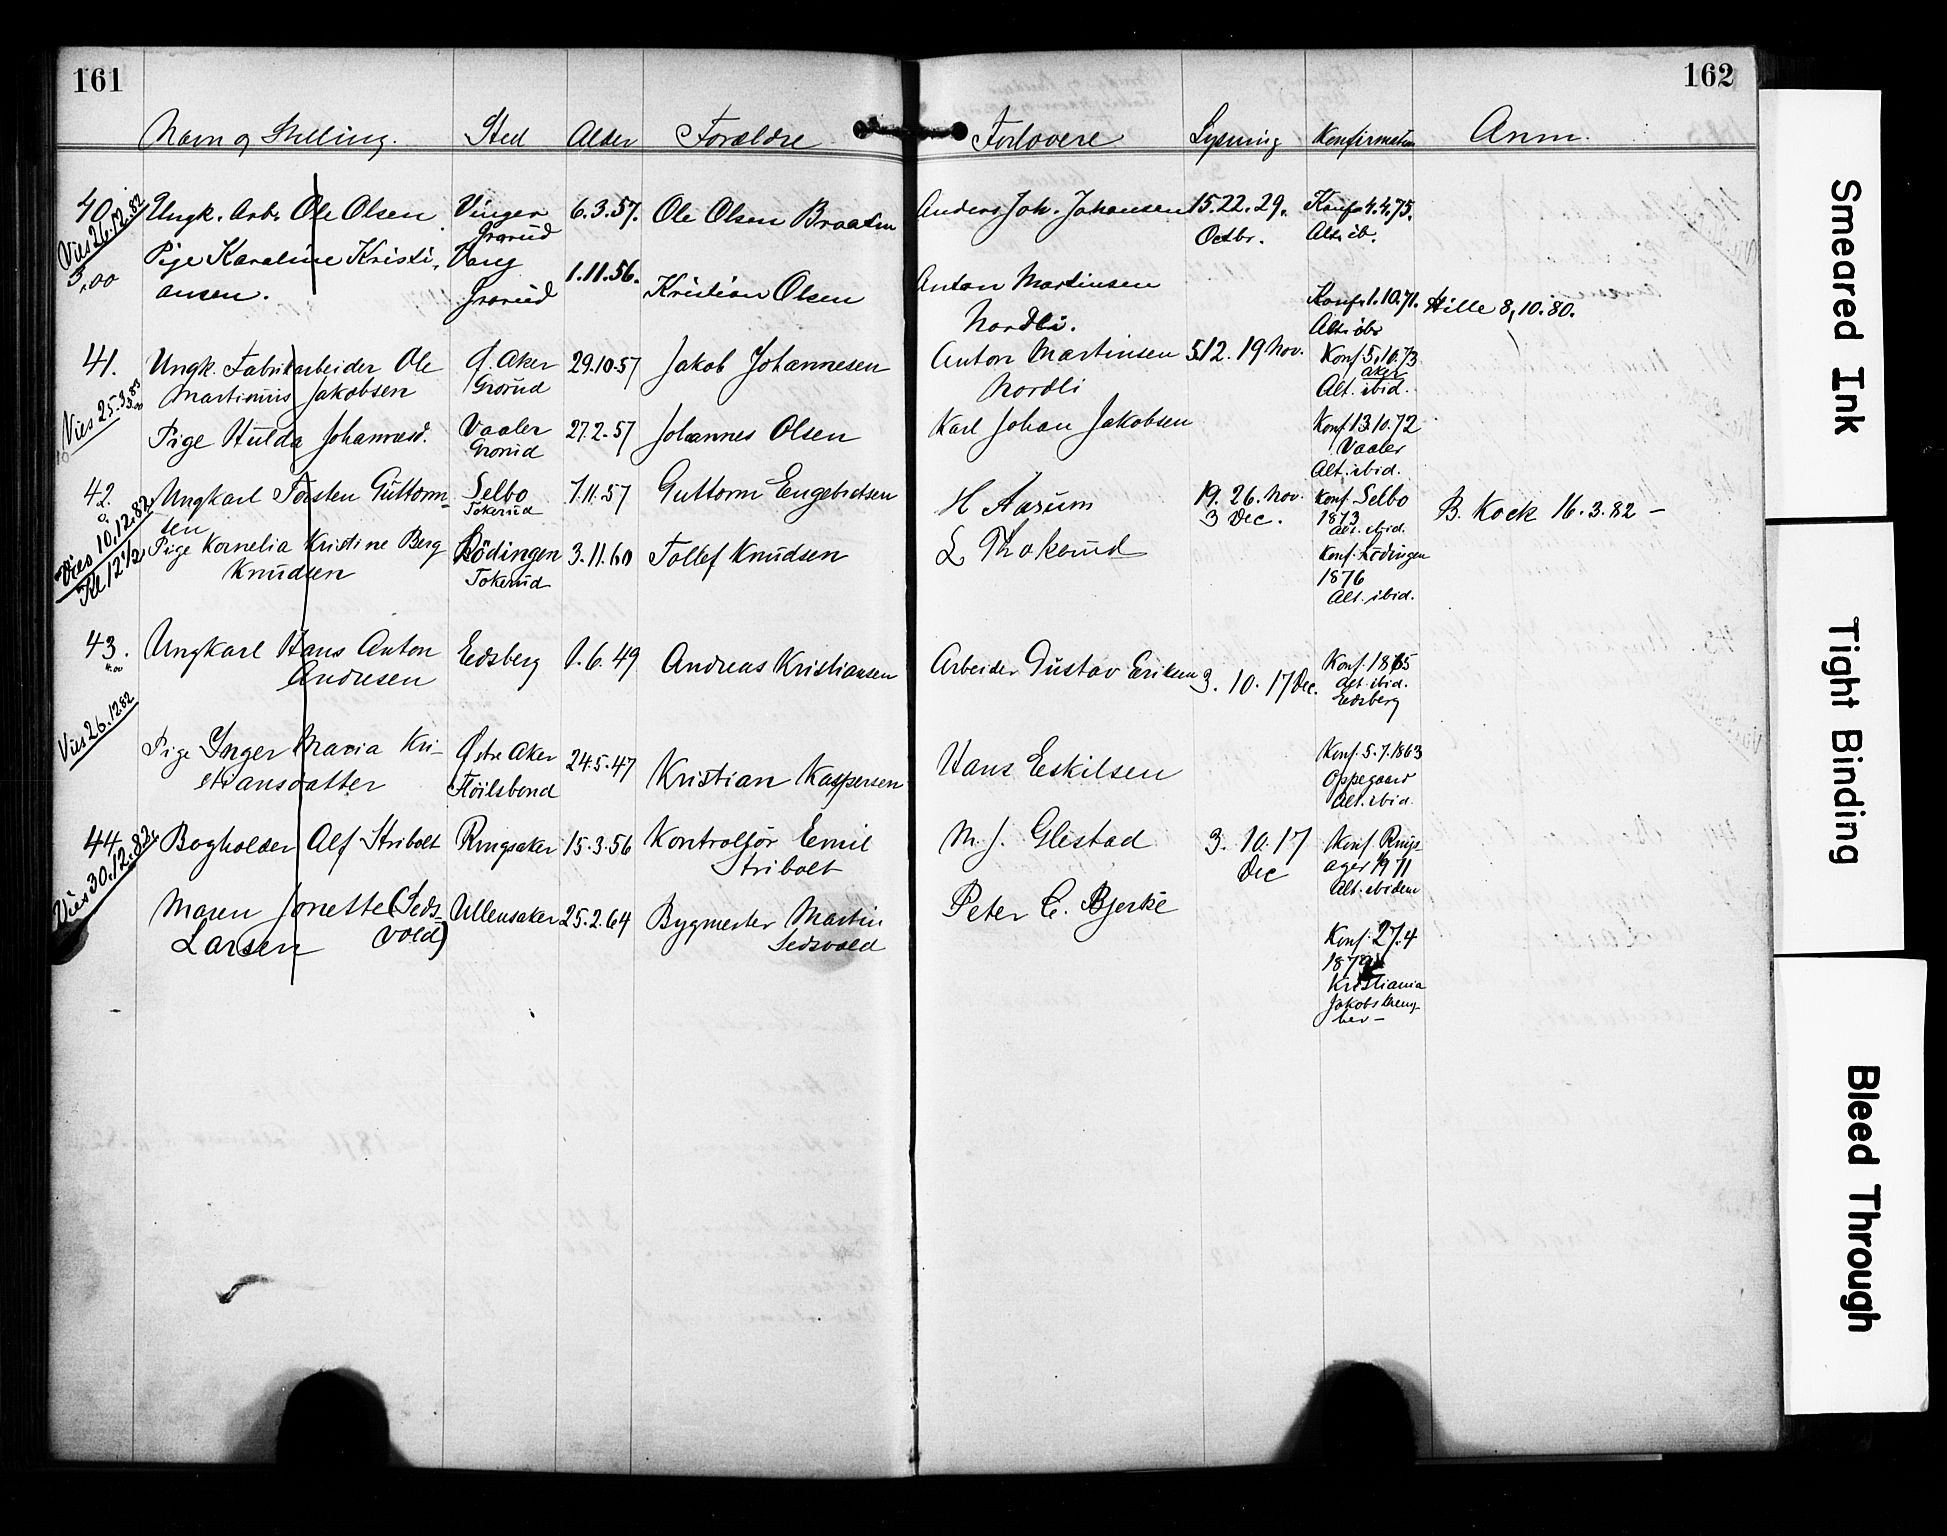 161
162
Navn og Stilling.
Sted
Alder
Forældre
Forlovere
Lysning
Konfirmation
Anm.
40.
Vies 26.12.82
3,00
Ungk. Arb. Ole Olsen
Vinger
Grorud
6.3.57.
Ole Olsen Braaten
Anders Joh. Johansen
15. 22. 29.
Octbr.
Konf. 4.4.75.
Alt. ib.
Pige Karoline Kristi-
ansen.
Vang
Grorud
1.11.56.
Kristian Olsen
Anton Martinsen
Nordli.
Konf. 1.10.71.
Alt. ib.
Hille 8,10.80.
41.
Vies 25.3.83
Ungk. Fabrikarbeider Ole
Martinius Jakobsen
Ø. Aker
Grorud
29.10.57
Jakob Johannesen
Anton Martinsen
Nordli
5. 12. 19 Nov.
Konf. 5.10.73
Aker
Alt. ibid.
Pige Hulda Johannesd.
Vaaler
Grorud
27.2.57
Johannes Olsen
Karl Johan Jakobsen
Konf. 13.10.72
Vaaler
Alt. ibid.
42.
Vies 10.12.82.
Kl 12 1/2
Ungkarl Torsten Guttorm-
sen
Selbo
Tokerud
7.11.57
Guttorm Engebretsen
H Aarum
19. 26. Nov.
3 Dec.
Konf. Selbo
1873
Alt. ibid.
B. Kock 16.3.82 —
Pige Kornelia Kristine Berg
Knudsen
Lödingen
Tokerud
3.11.60
Tollef Knudsen
L Thokerud
Konf. Lödingen
1876
Alt. ibid.
43.
4.00
Vies 26.12 82
Ungkarl Hans Anton
Andresen
Eidsberg
1.6.49
Andreas Kristiansen
Arbeider Gustav Eriksen
3. 10. 17 Dec.
Konf. 1865
Alt. ibid.
Eidsberg
Pige Inger Maria Kri-
stiansdatter
Østre Aker
Höilsbond
24.5.47
Kristian Kaspersen
Hans Eskilsen
Konf. 5.7.1863
Oppegaard
Alt. ibid.
44.
Vies 30.12.82.
Bogholder Alf Stribolt
Ringsaker
15.3.56
Kontrollör Emil
Stribolt
M. J. Glestad
3. 10. 17
Dec
Konf. Rings-
ager 1871
Alt. ibidem
Maren Jonette (Seds-
Larsen vold)
Ullensaker
25.2.64
Bygmester Martin
Sedsvold
Peter C. Bjerke
Konf. 27.4
1879
Kristiania
Jakobs Meng-
hed —
Smeared Ink
Tight Binding
Bleed Through